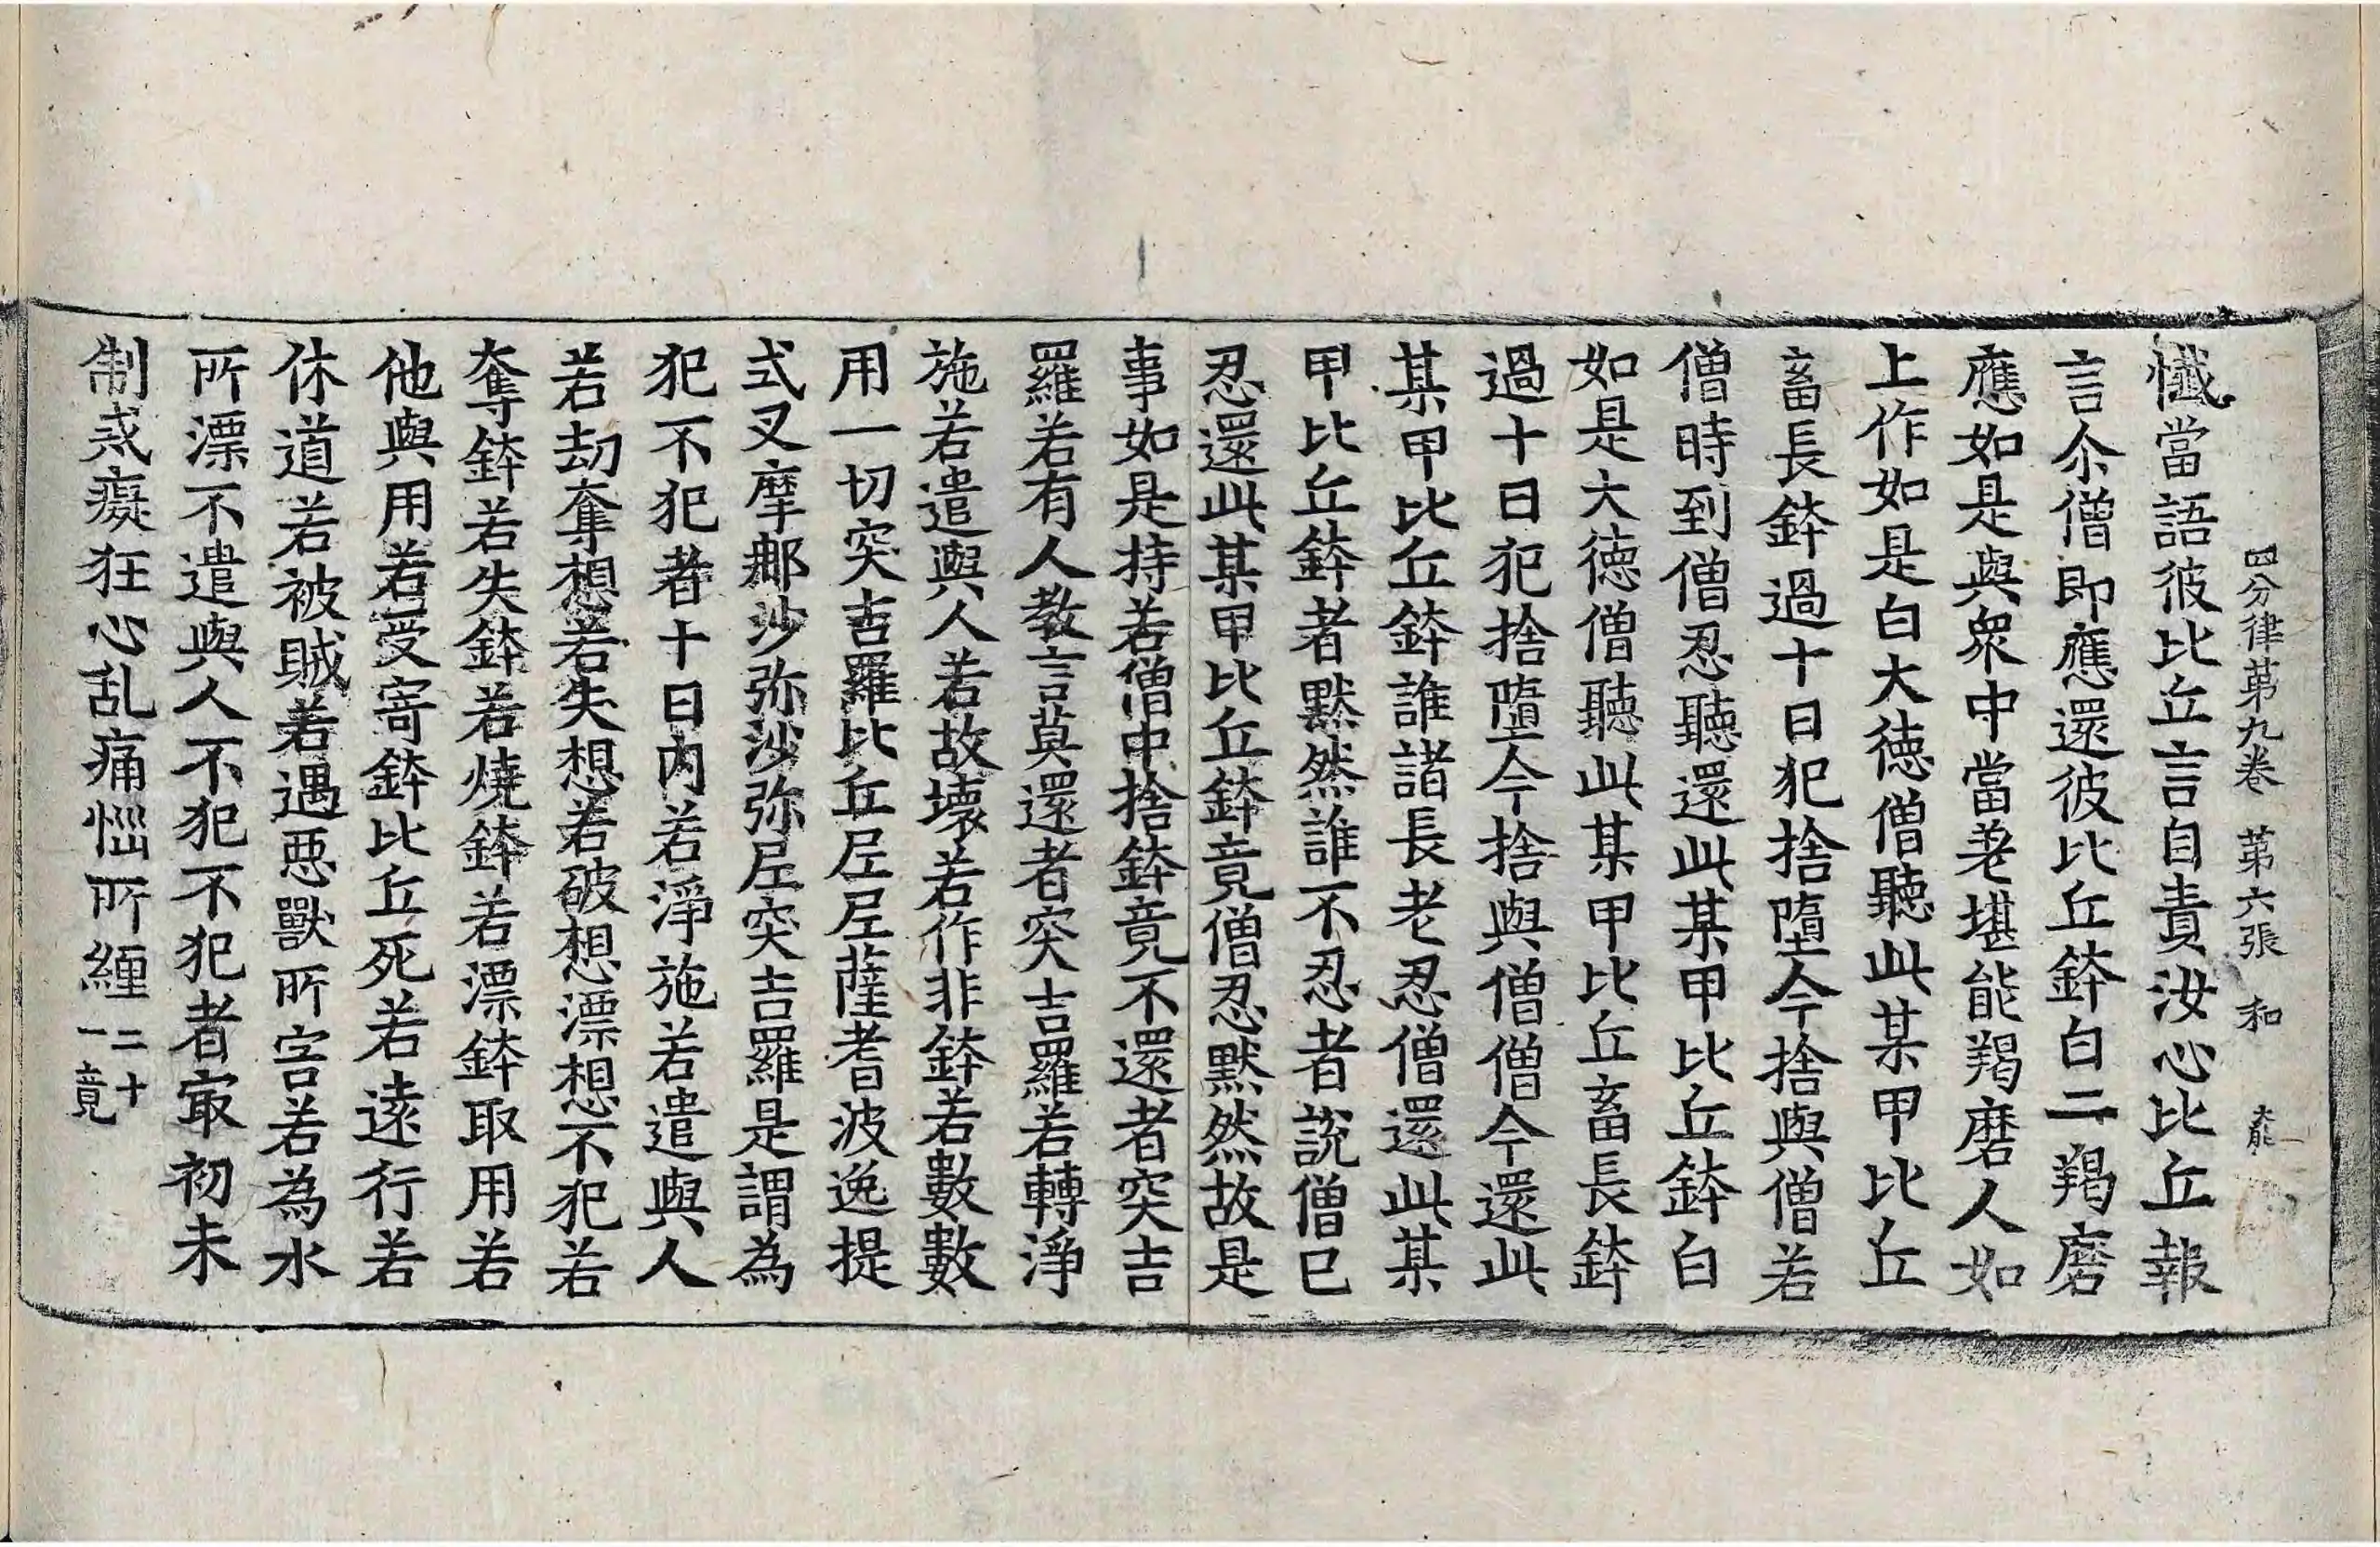 四分律苐九卷 苐六張 和
懺當語彼比丘言自責汝心比丘報
言尒僧即應還彼比丘鉢白二羯磨
應如是與衆中當差堪能羯磨人如
上作如是白大徳僧聽此某甲比丘
畜長鉢過十日犯捨墮今捨與僧若
僧時到僧忍聽還此某甲比丘鉢白
如是大徳僧聽此某甲比丘畜長鉢
過十日犯捨墮今捨與僧僧今還此
某甲比丘鉢誰諸長老忍僧還此某
甲比丘鉢者黙然誰不忍者說僧已
忍還此某甲比丘鉢竟僧忍黙然故是
事如是持若僧中捨鉢竟不還者突吉
羅若有人教言莫還者突吉羅若轉淨
施若遣與人若故壞若作非鉢若數數
用一切突吉羅比丘尼尼薩耆波逸提
式叉摩那沙弥沙弥尼突吉羅是謂為
犯不犯者十日內若淨施若遣與人
若劫奪想若失想若破想漂想不犯若
奪鉢若失鉢若燒鉢若漂鉢取用若
他與用若受寄鉢比丘死若遠行若
休道若被賊若遇惡獸所害若為水
所漂不遣與人不犯不犯者㝡初未
制戒癡狂心乱痛惱所纏二十一竟